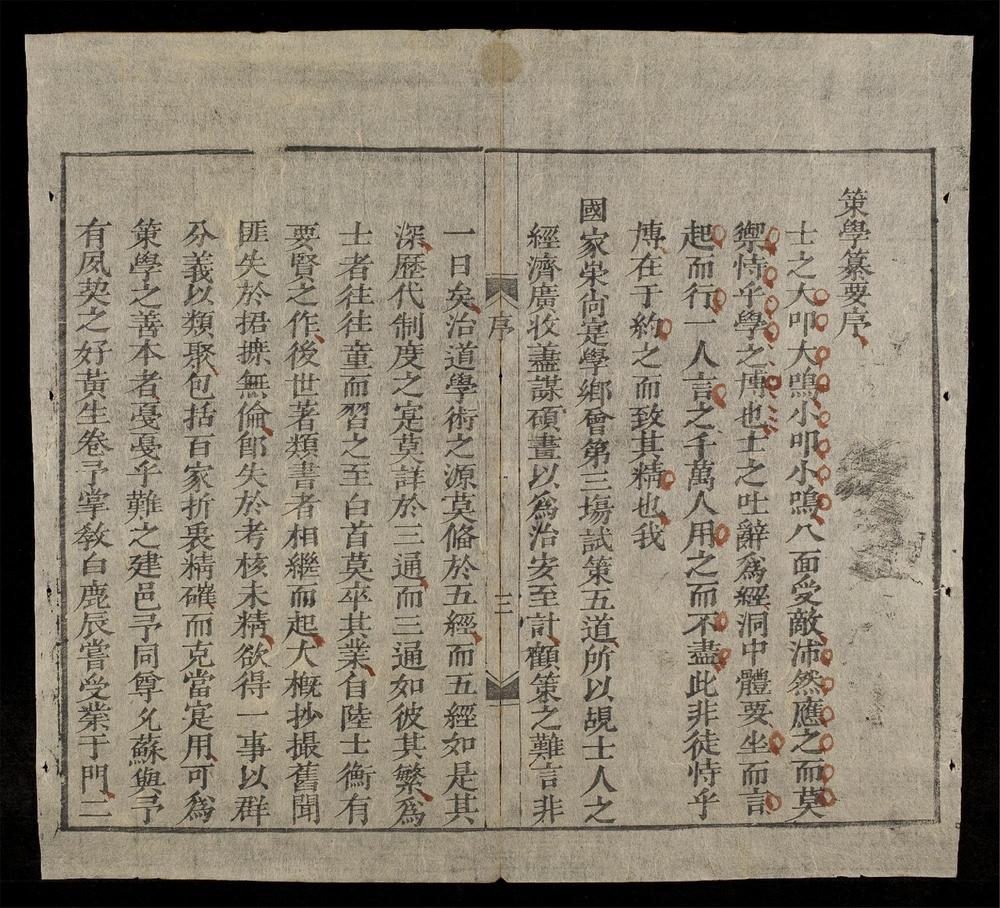 策學纂要序
士之大叩大鳴小叩小鳴八面受敵沛然應之而莫
禦恃乎學之博也士之吐辭爲經洞中體要坐而言
起而行一人言之千萬人用之而不盡此非徒恃乎
博在于約之而致其精也我
國家崇尚寔學鄉會第三塲試策五道所以覘士人之
經濟廣收藎謀碩畫以爲治安至計顧策之難言非
序
三
一日矣治道學術之源莫偹於五經而五經如是其
深歷代制度之寔莫詳於三通而三通如彼其繁爲
士者往往童而習之至白首莫卒其業自陸士衡有
要賢之作後世著類書者相繼而起大概抄撮舊聞
匪失於捃摭無倫卽失於考核未精欲得一事以群
分義以類聚包括百家折衷精確而克當寔用可爲
策學之善本者戞戞乎難之建邑予同尊兄蘇與予
有夙契之好黃生卷予掌敎白鹿辰嘗受業于門二